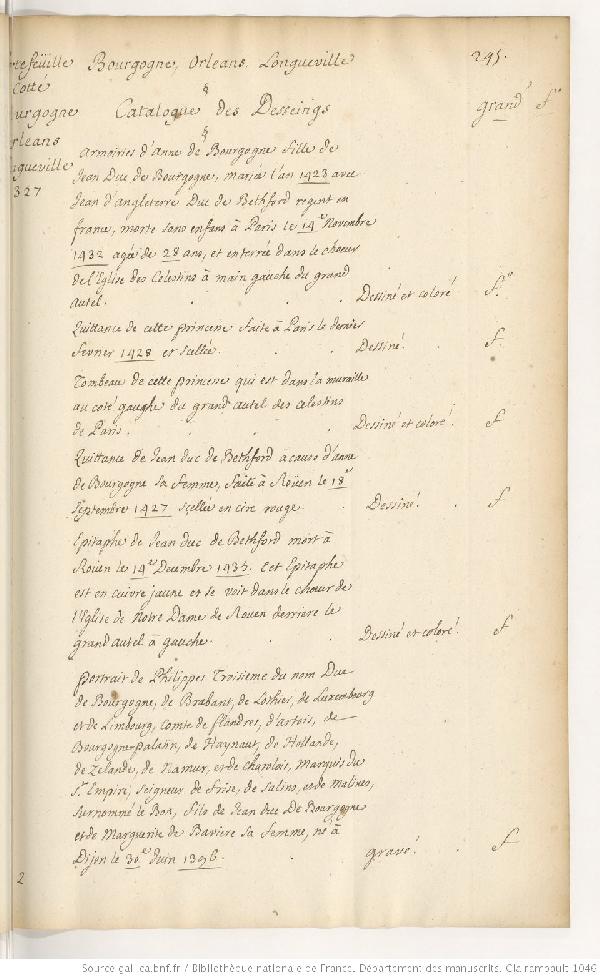 tefeüille Bourgogne, Orleans, Longueville 245.
Cotté §
urgogne Catalogue des Desseings grand f°
rleans §
gueville
327
Armoiries d'anne de Bourgogne fille de
Jean Duc de Bourgogne, marié l'an 1423 avec
Jean d'angleterre Duc de Bethford regent en
france, morte sans enfans à Paris le 14e Novembre
1432 agée de 28 ans, et enterrée dans le choeur
de l'Eglise des Celestins à main gauche du grand
autel. Dessiné et coloré f°
Quittance de cette princesse faite à Paris le dernier
fevrier 1428 et scellée. Dessiné f
Tombeau de cette princesse qui est dans la muraille
au coté gauche du grand autel des celestins
de Paris. Dessiné et coloré f
Quittance de Jean duc de Bethford a cause d'anne
de Bourgogne sa femme, faite à Roüen le 18e
Septembre 1427 scellée en cire rouge Dessiné f
Epitaphe de Jean duc de Bethford mort à
Roüen le 14e Decembre 1435. cet Epitaphe
est en cuivre jaune et se voit dans le chœur de
l'Eglise de Notre Dame de Rouen derriere le
grand autel à gauche. Dessiné et coloré f
Portrait de Philippes Troisieme du nom Duc
de Bourgogne, de Brabant, de Lothier, de Luxembourg
et de Limbourg, comte de flandres, d'artois, de
Bourgogne-palatin, de Haynaut, de Hollande,
de Zelande, de Namur, et de charolois, Marquis du
St Empire, seigneur de frise, de Salins, et de Malines,
surnommé le Bon, fils de Jean duc De Bourgogne
et de Marguerite de Baviere sa femme, né à
Dijon le 30e Juin 1396. gravé f
2
Source gallica.bnf.fr / Bibliothèque nationale de France. Département des manuscrits. Clairambault 1046